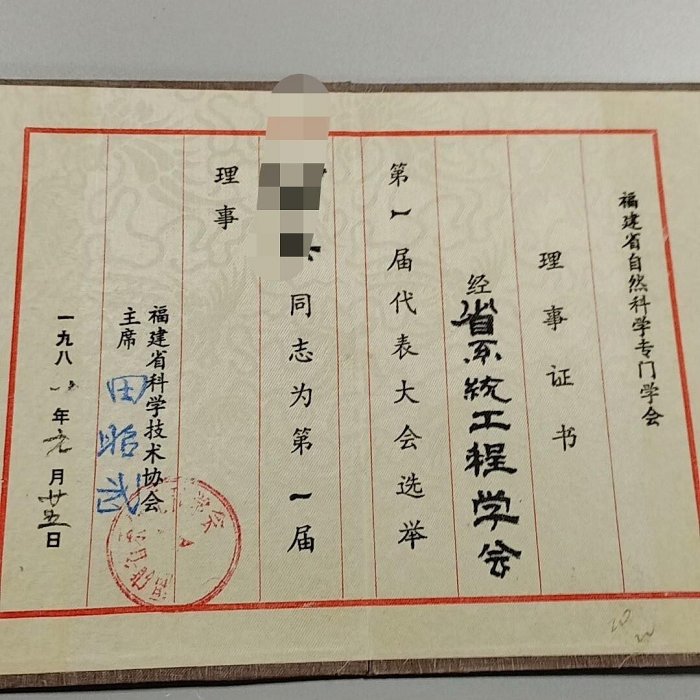 福建省自然科学专门学会
理事证书
经省系统工程学会
第一届代表大会选举
同志为第一届
理事
福建省科学技术协会
主席 田昭武
一九八 年 月廿五日